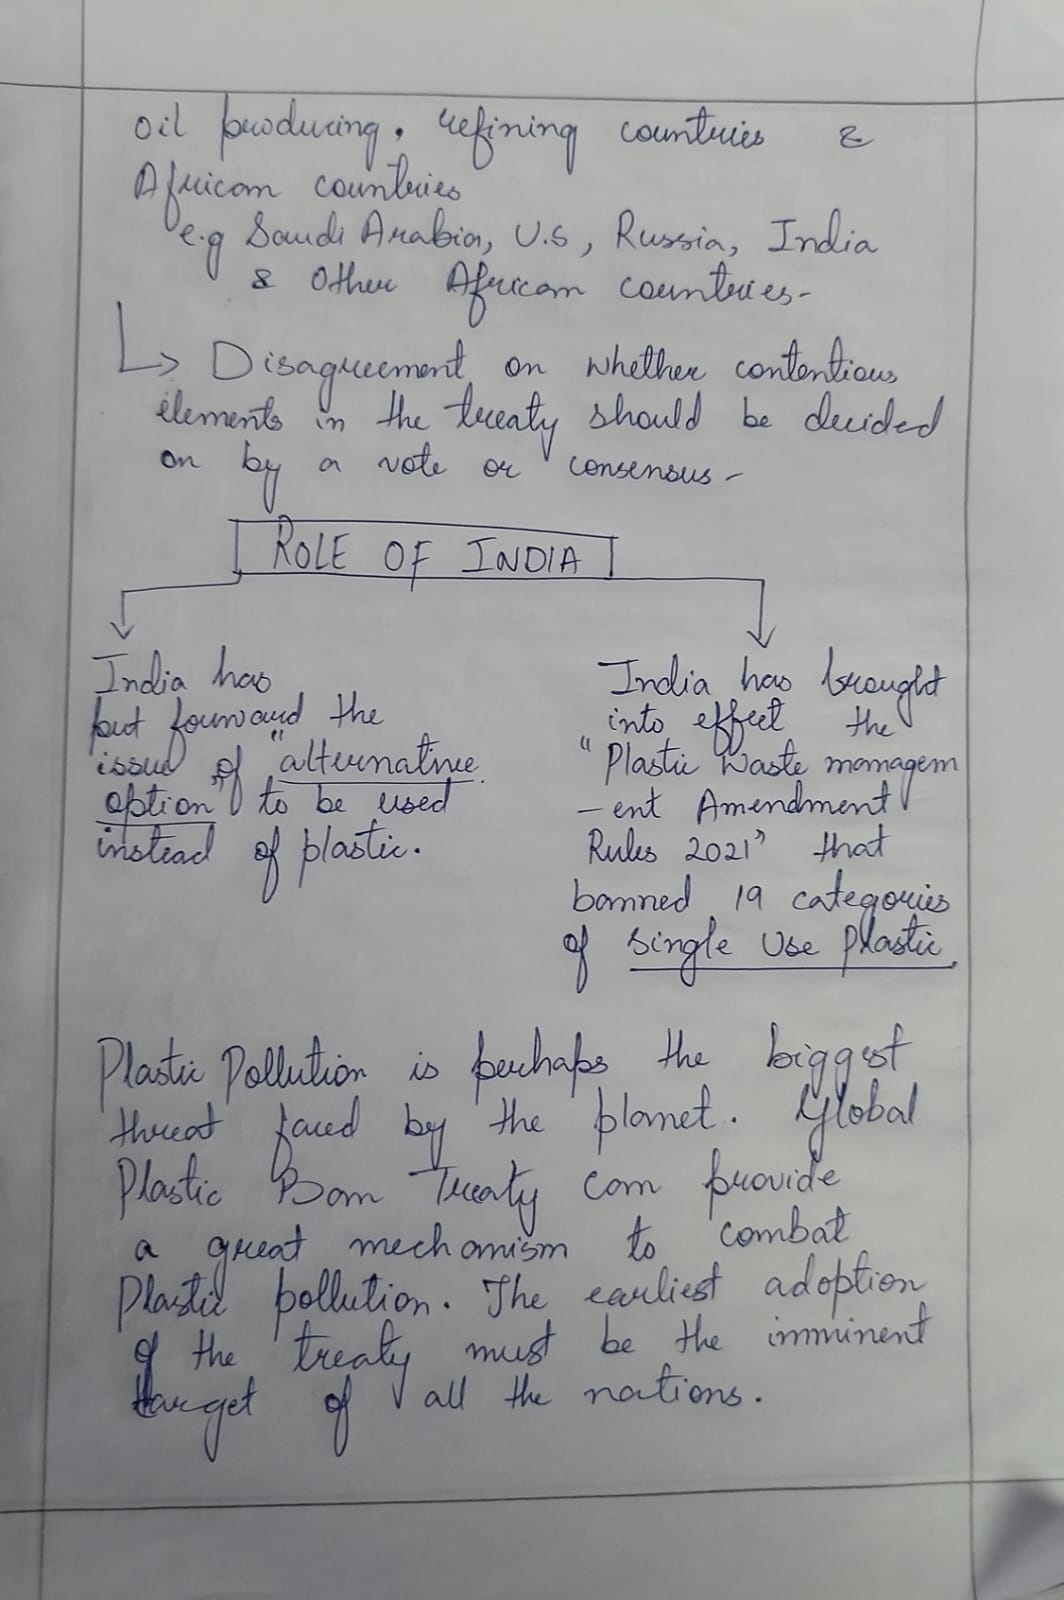 oil producing, refining countries &
African countries
e.g Saudi Arabia, U.S, Russia, India
& Other African countries-
Disagreement on whether contentious
elements in the treaty should be decided
on by a vote or consensus-
ROLE OF INDIA
India has
put forward the
issue of "alternative
option" to be used
instead of plastic.
India has brought
into effect the
"Plastic Waste managem
-ent Amendment
Rules 2021" that
banned 19 categories
of single Use Plastic.
Plastic Pollution is perhaps the biggest
threat faced by the planet. Global
Plastic Ban Treaty can provide
a great mechanism to combat
Plastic pollution. The earliest adoption
of the treaty must be the imminent
target of all the nations.